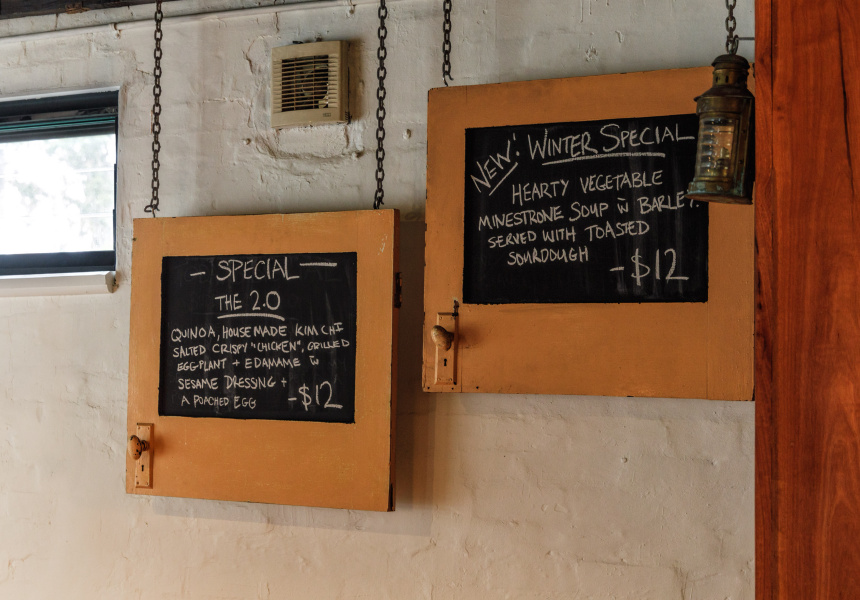 - SPECIAL -
THE 2.0
QUINOA, HOUSE MADE KIM CHI
SALTED CRISPY "CHICKEN", GRILLED
EGG-PLANT + EDAMAME W̄
SESAME DRESSING +
A POACHED EGG
-$12
NEW! WINTER SPECIAL
HEARTY VEGETABLE
MINESTRONE SOUP W̄ BARLEY.
SERVED WITH TOASTED
SOURDOUGH
-$12